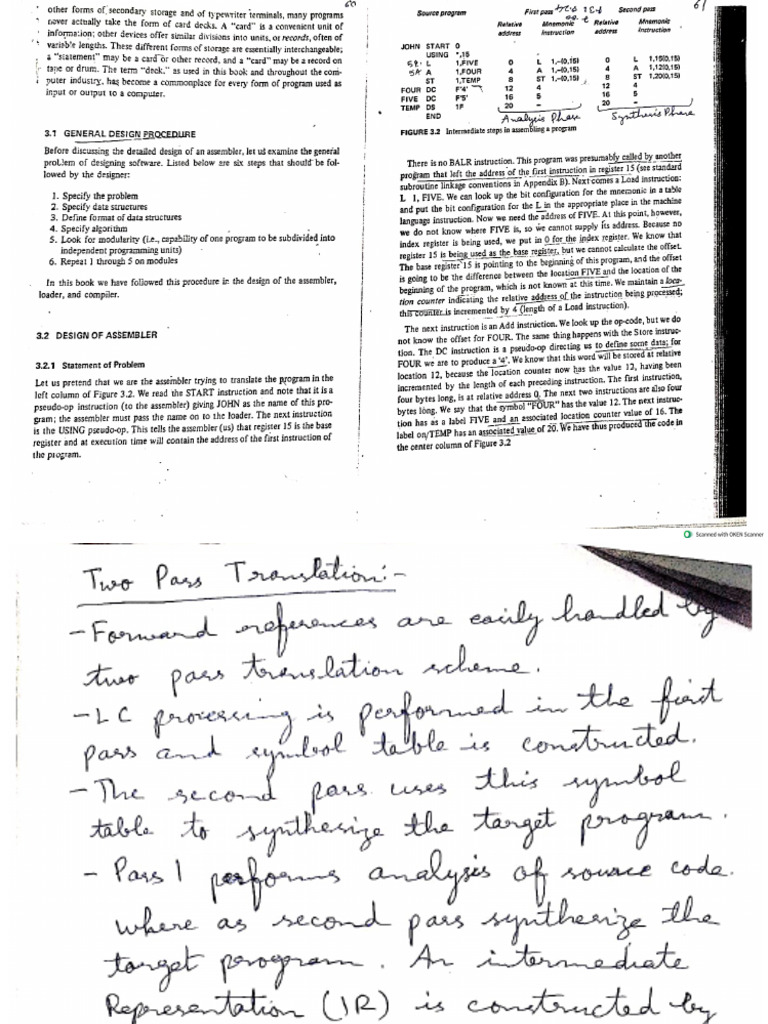 60
other forms of secondary storage and of typewriter terminals, many programs
never actually take the form of card decks. A "card" is a convenient unit of
information; other devices offer similar divisions into units, or records, often of
variable lengths. These different forms of storage are essentially interchangeable;
a "statement" may be a card or other record, and a "card" may be a record on
tape or drum. The term "deck," as used in this book and throughout the com-
puter industry, has become a commonplace for every form of program used as
input or output to a computer.
3.1 GENERAL DESIGN PROCEDURE
Before discussing the detailed design of an assembler, let us examine the general
problem of designing software. Listed below are six steps that should be fol-
lowed by the designer:
1. Specify the problem
2. Specify data structures
3. Define format of data structures
4. Specify algorithm
5. Look for modularity (i.e., capability of one program to be subdivided into
independent programming units)
6. Repeat 1 through 5 on modules
In this book we have followed this procedure in the design of the assembler,
loader, and compiler.
3.2 DESIGN OF ASSEMBLER
3.2.1 Statement of Problem
Let us pretend that we are the assembler trying to translate the program in the
left column of Figure 3.2. We read the START instruction and note that it is a
pseudo-op instruction (to the assembler) giving JOHN as the name of this pro-
gram; the assembler must pass the name on to the loader. The next instruction
is the USING pseudo-op. This tells the assembler (us) that register 15 is the base
register and at execution time will contain the address of the first instruction of
the program.
61
Source program First pass Second pass
Relative Mnemonic Relative Mnemonic
address instruction address instruction
JOHN START 0
USING *,15
58- L 1,FIVE 0 L 1,–(0,15) 0 L 1,16(0,15)
5A A 1,FOUR 4 A 1,–(0,15) 4 A 1,12(0,15)
ST 1,TEMP 8 ST 1,–(0,15) 8 ST 1,20(0,15)
FOUR DC F'4' 12 4 12 4
FIVE DC F'5' 16 5 16 5
TEMP DS 1F 20 – 20 –
END Analysis Phase Synthesis Phase
FIGURE 3.2 Intermediate steps in assembling a program
There is no BALR instruction. This program was presumably called by another
program that left the address of the first instruction in register 15 (see standard
subroutine linkage conventions in Appendix B). Next comes a Load instruction:
L 1, FIVE. We can look up the bit configuration for the mnemonic in a table
and put the bit configuration for the L in the appropriate place in the machine
language instruction. Now we need the address of FIVE. At this point, however,
we do not know where FIVE is, so we cannot supply its address. Because no
index register is being used, we put in 0 for the index register. We know that
register 15 is being used as the base register, but we cannot calculate the offset.
The base register 15 is pointing to the beginning of this program, and the offset
is going to be the difference between the location FIVE and the location of the
beginning of the program, which is not known at this time. We maintain a loca-
tion counter indicating the relative address of the instruction being processed;
this counter is incremented by 4 (length of a Load instruction).
The next instruction is an Add instruction. We look up the op-code, but we do
not know the offset for FOUR. The same thing happens with the Store instruc-
tion. The DC instruction is a pseudo-op directing us to define some data; for
FOUR we are to produce a '4'. We know that this word will be stored at relative
location 12, because the location counter now has the value 12, having been
incremented by the length of each preceding instruction. The first instruction,
four bytes long, is at relative address 0. The next two instructions are also four
bytes long. We say that the symbol "FOUR" has the value 12. The next instruc-
tion has as a label FIVE and an associated location counter value of 16. The
label on TEMP has an associated value of 20. We have thus produced the code in
the center column of Figure 3.2
Scanned with OKEN Scanner
Two Pass Translation:-
- Forward references are easily handled by
two pass translation scheme.
- LC processing is performed in the first
pass and symbol table is constructed.
- The second pass uses this symbol
table to synthesize the target program.
- Pass 1 performs analysis of source code.
where as second pass synthesize the
target program. An intermediate
Representation (IR) is constructed by